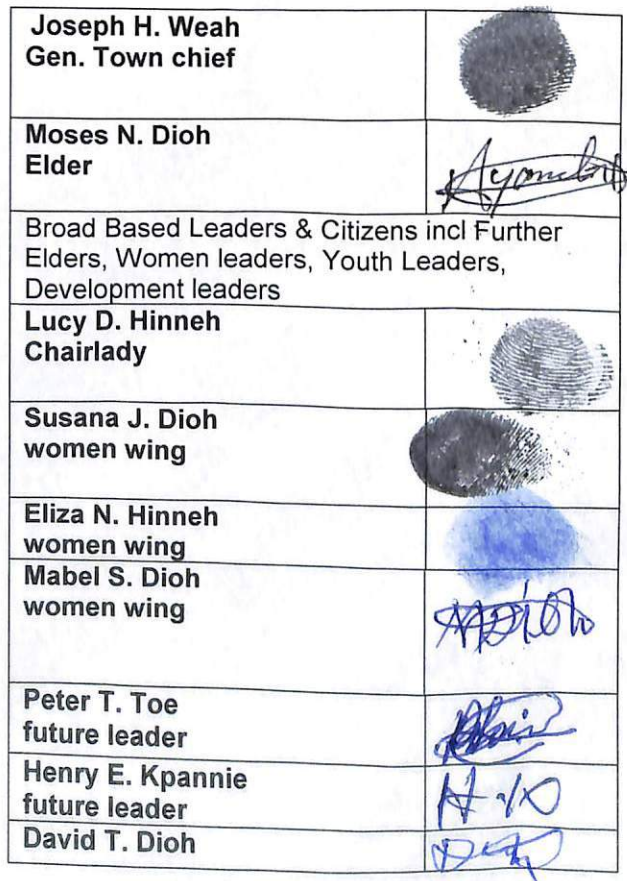 Joseph H. Weah
Gen. Town chief
Moses N. Dioh
Elder
Broad Based Leaders & Citizens incl Further
Elders, Women leaders, Youth Leaders,
Development leaders
Lucy D. Hinneh
Chairlady
Susana J. Dioh
women wing
Eliza N. Hinneh
women wing
Mabel S. Dioh
women wing
Peter T. Toe
future leader
Henry E. Kpannie
future leader
David T. Dioh